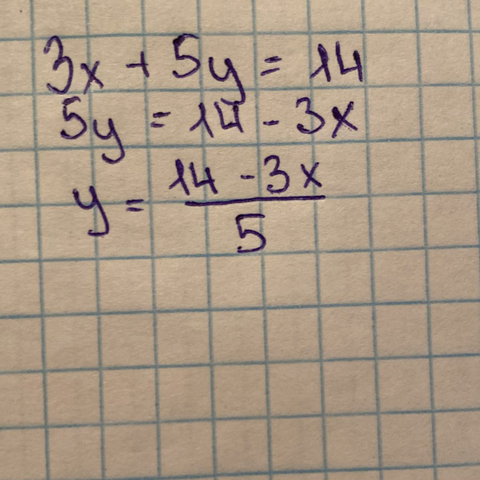 3x + 5y = 14
5y = 14 - 3x
y = (14 - 3x)/5